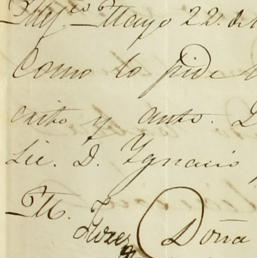 Mayo 22. de
Como lo pide
crito y auto.
Lic. D. Ygnacio
M.
Doña